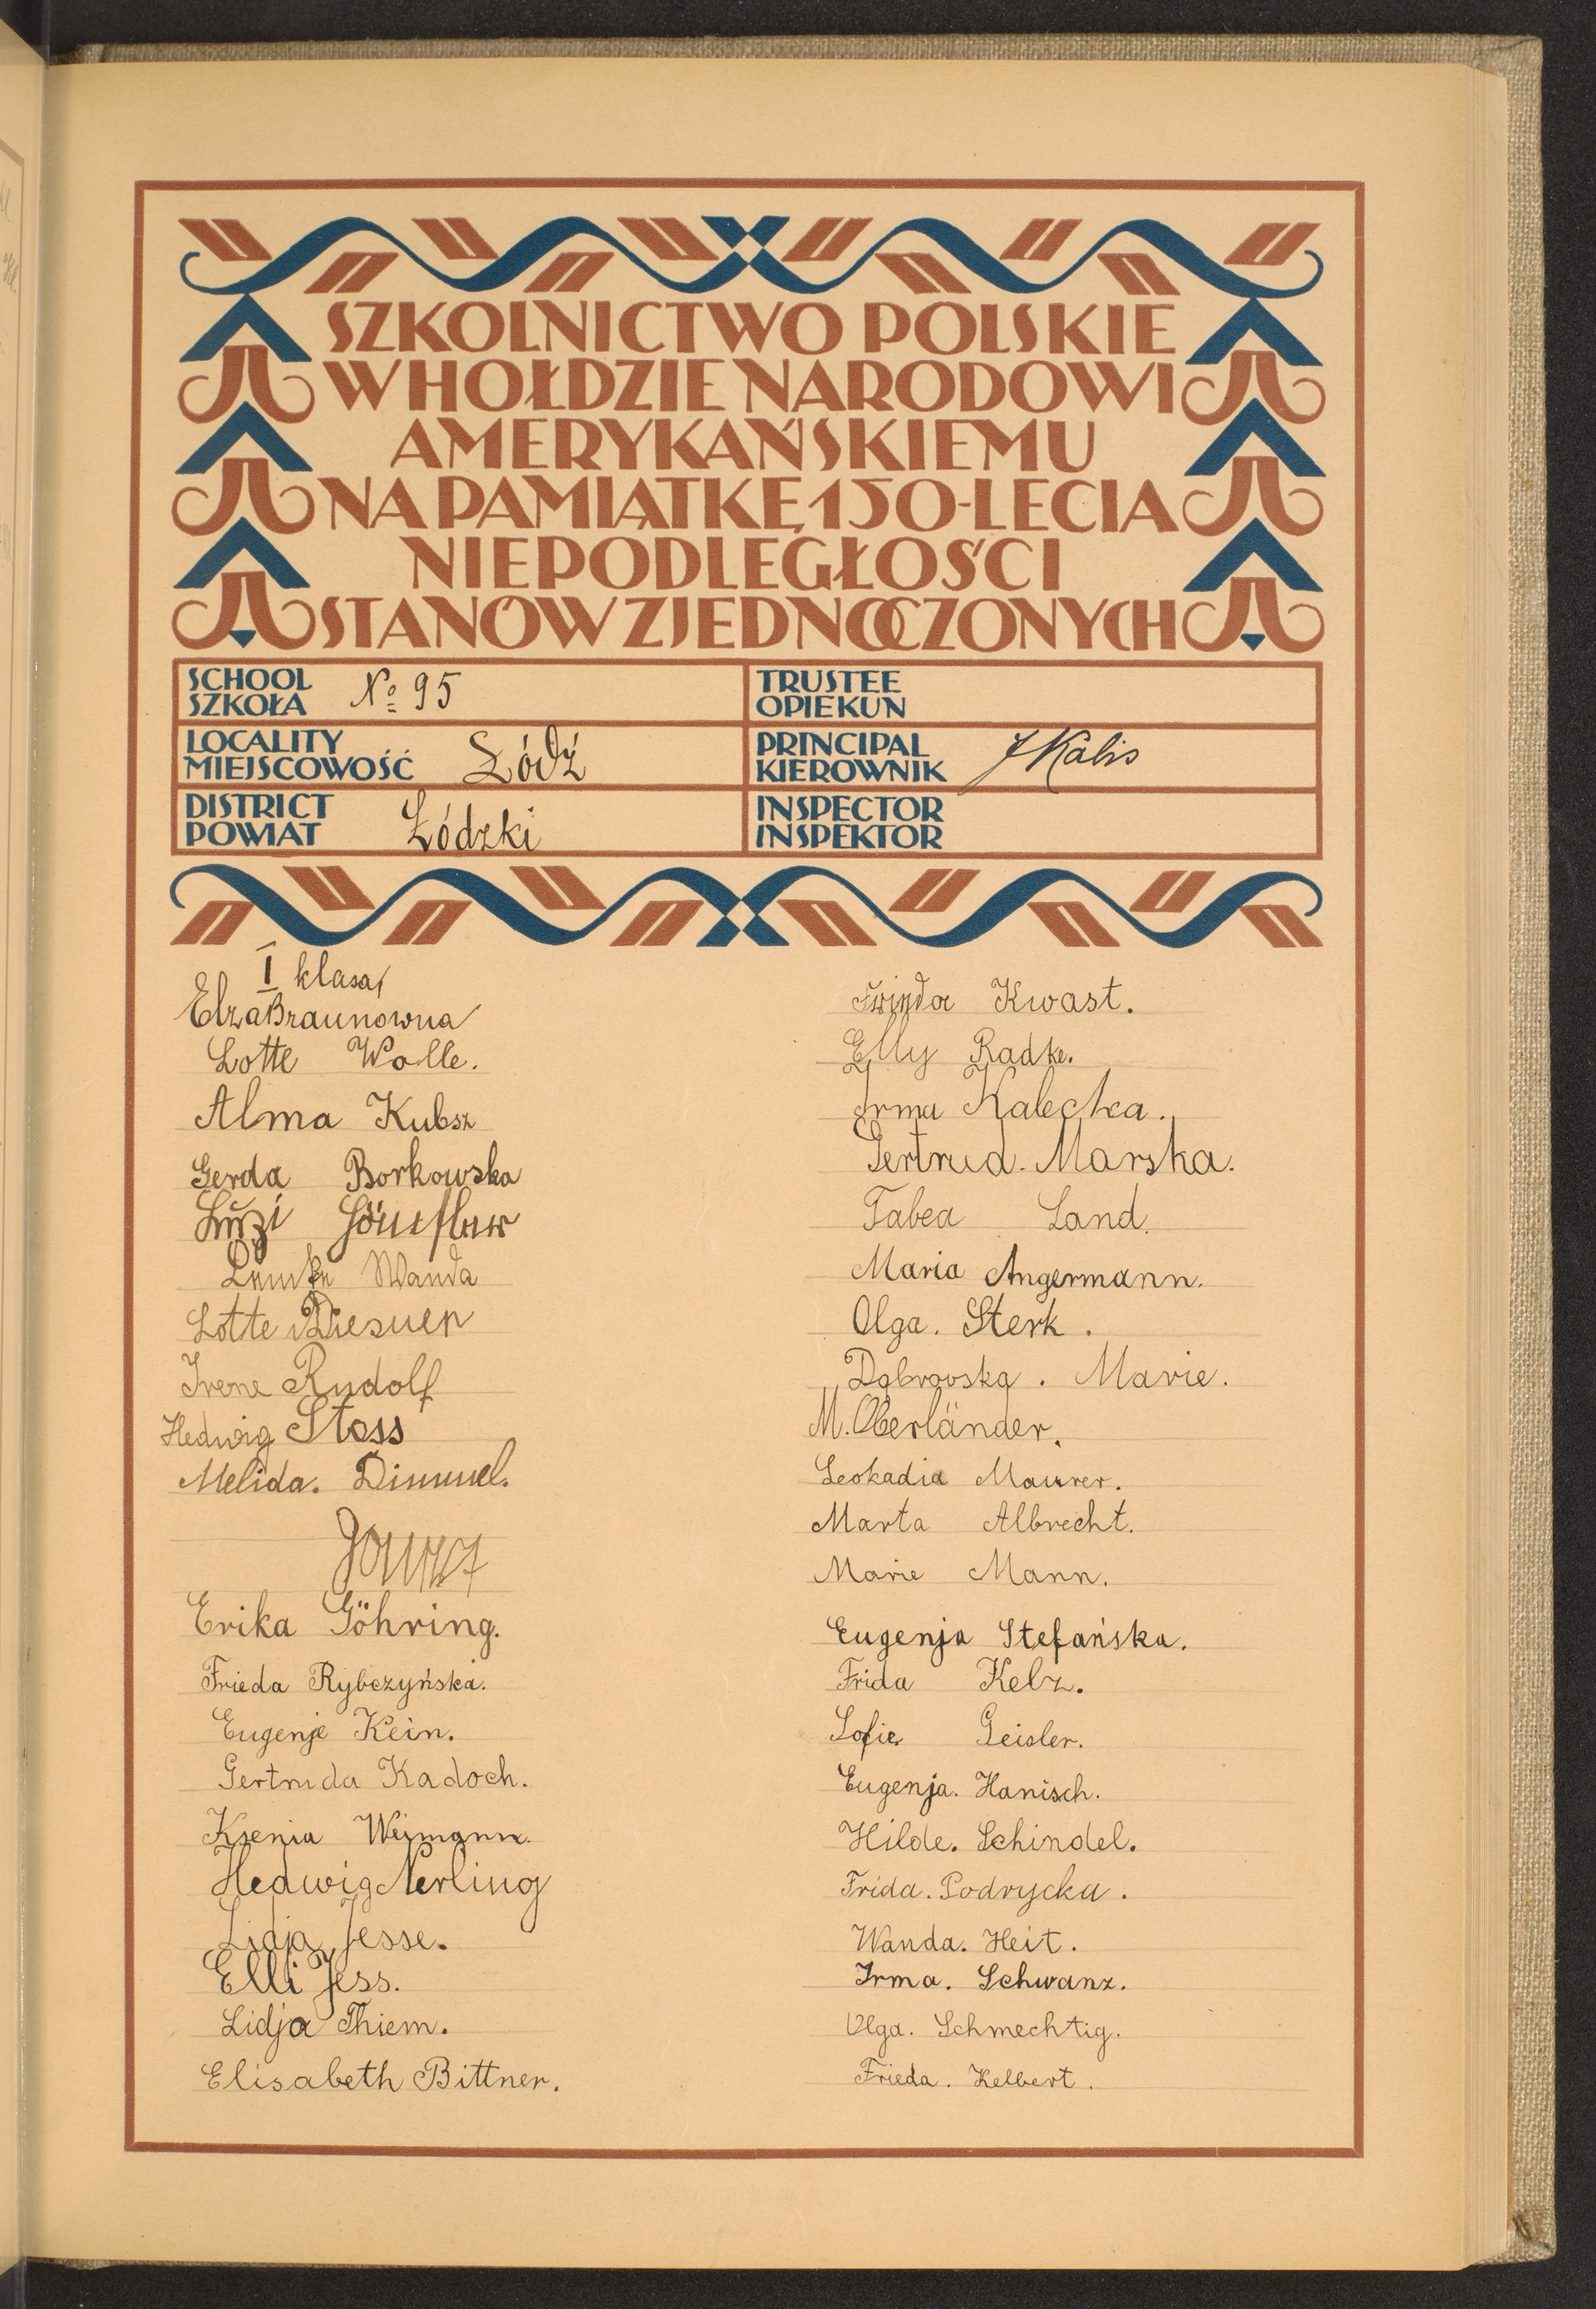 SZKOLNICTWO POLSKIE
W HOŁDZIE NARODOWI
AMERYKAŃSKIEMU
NA PAMIĄTKĘ 150-LECIA
NIEPODLEGŁOŚCI
STANÓW ZJEDNOCZONYCH
SCHOOL
SZKOŁA
No 95
TRUSTEE
OPIEKUN
LOCALITY
MIEJSCOWOŚĆ
Łódź
PRINCIPAL
KIEROWNIK
J Kalis
DISTRICT
POWIAT
Łódzki
INSPECTOR
INSPEKTOR
I klasa
Elza Braunowna
Lotte Wolle.
Alma Kubsz
Gerda Borkowska
Luzi
Wanda
Lotte Diesner
Irene Rudolf
Hedwig Stoss
Melida. Dimmel.
Erika Göhring.
Frieda Rybczyńska.
Eugenje Kein.
Gertruda Kadoch.
Ksenia Wejmann.
Hedwig Nerling
Lidja Jesse.
Elli Jess.
Lidja Thiem.
Elisabeth Bittner.
Kwast.
Elly Radke.
Irma Kalecka.
Gertrud. Marska.
Tabea Land.
Maria Angermann.
Olga. Sterk.
Dąbrowska. Marie.
M. Oberländer.
Leokadia Maurer.
Marta Albrecht.
Marie Mann.
Eugenja Stefańska.
Frida Kelz.
Sofie Geisler.
Eugenja. Hanisch.
Hilde. Schindel.
Frida. Podrycka.
Wanda. Heit.
Irma. Schwanz.
Olga. Schmechtig.
Frieda. Kelbert.